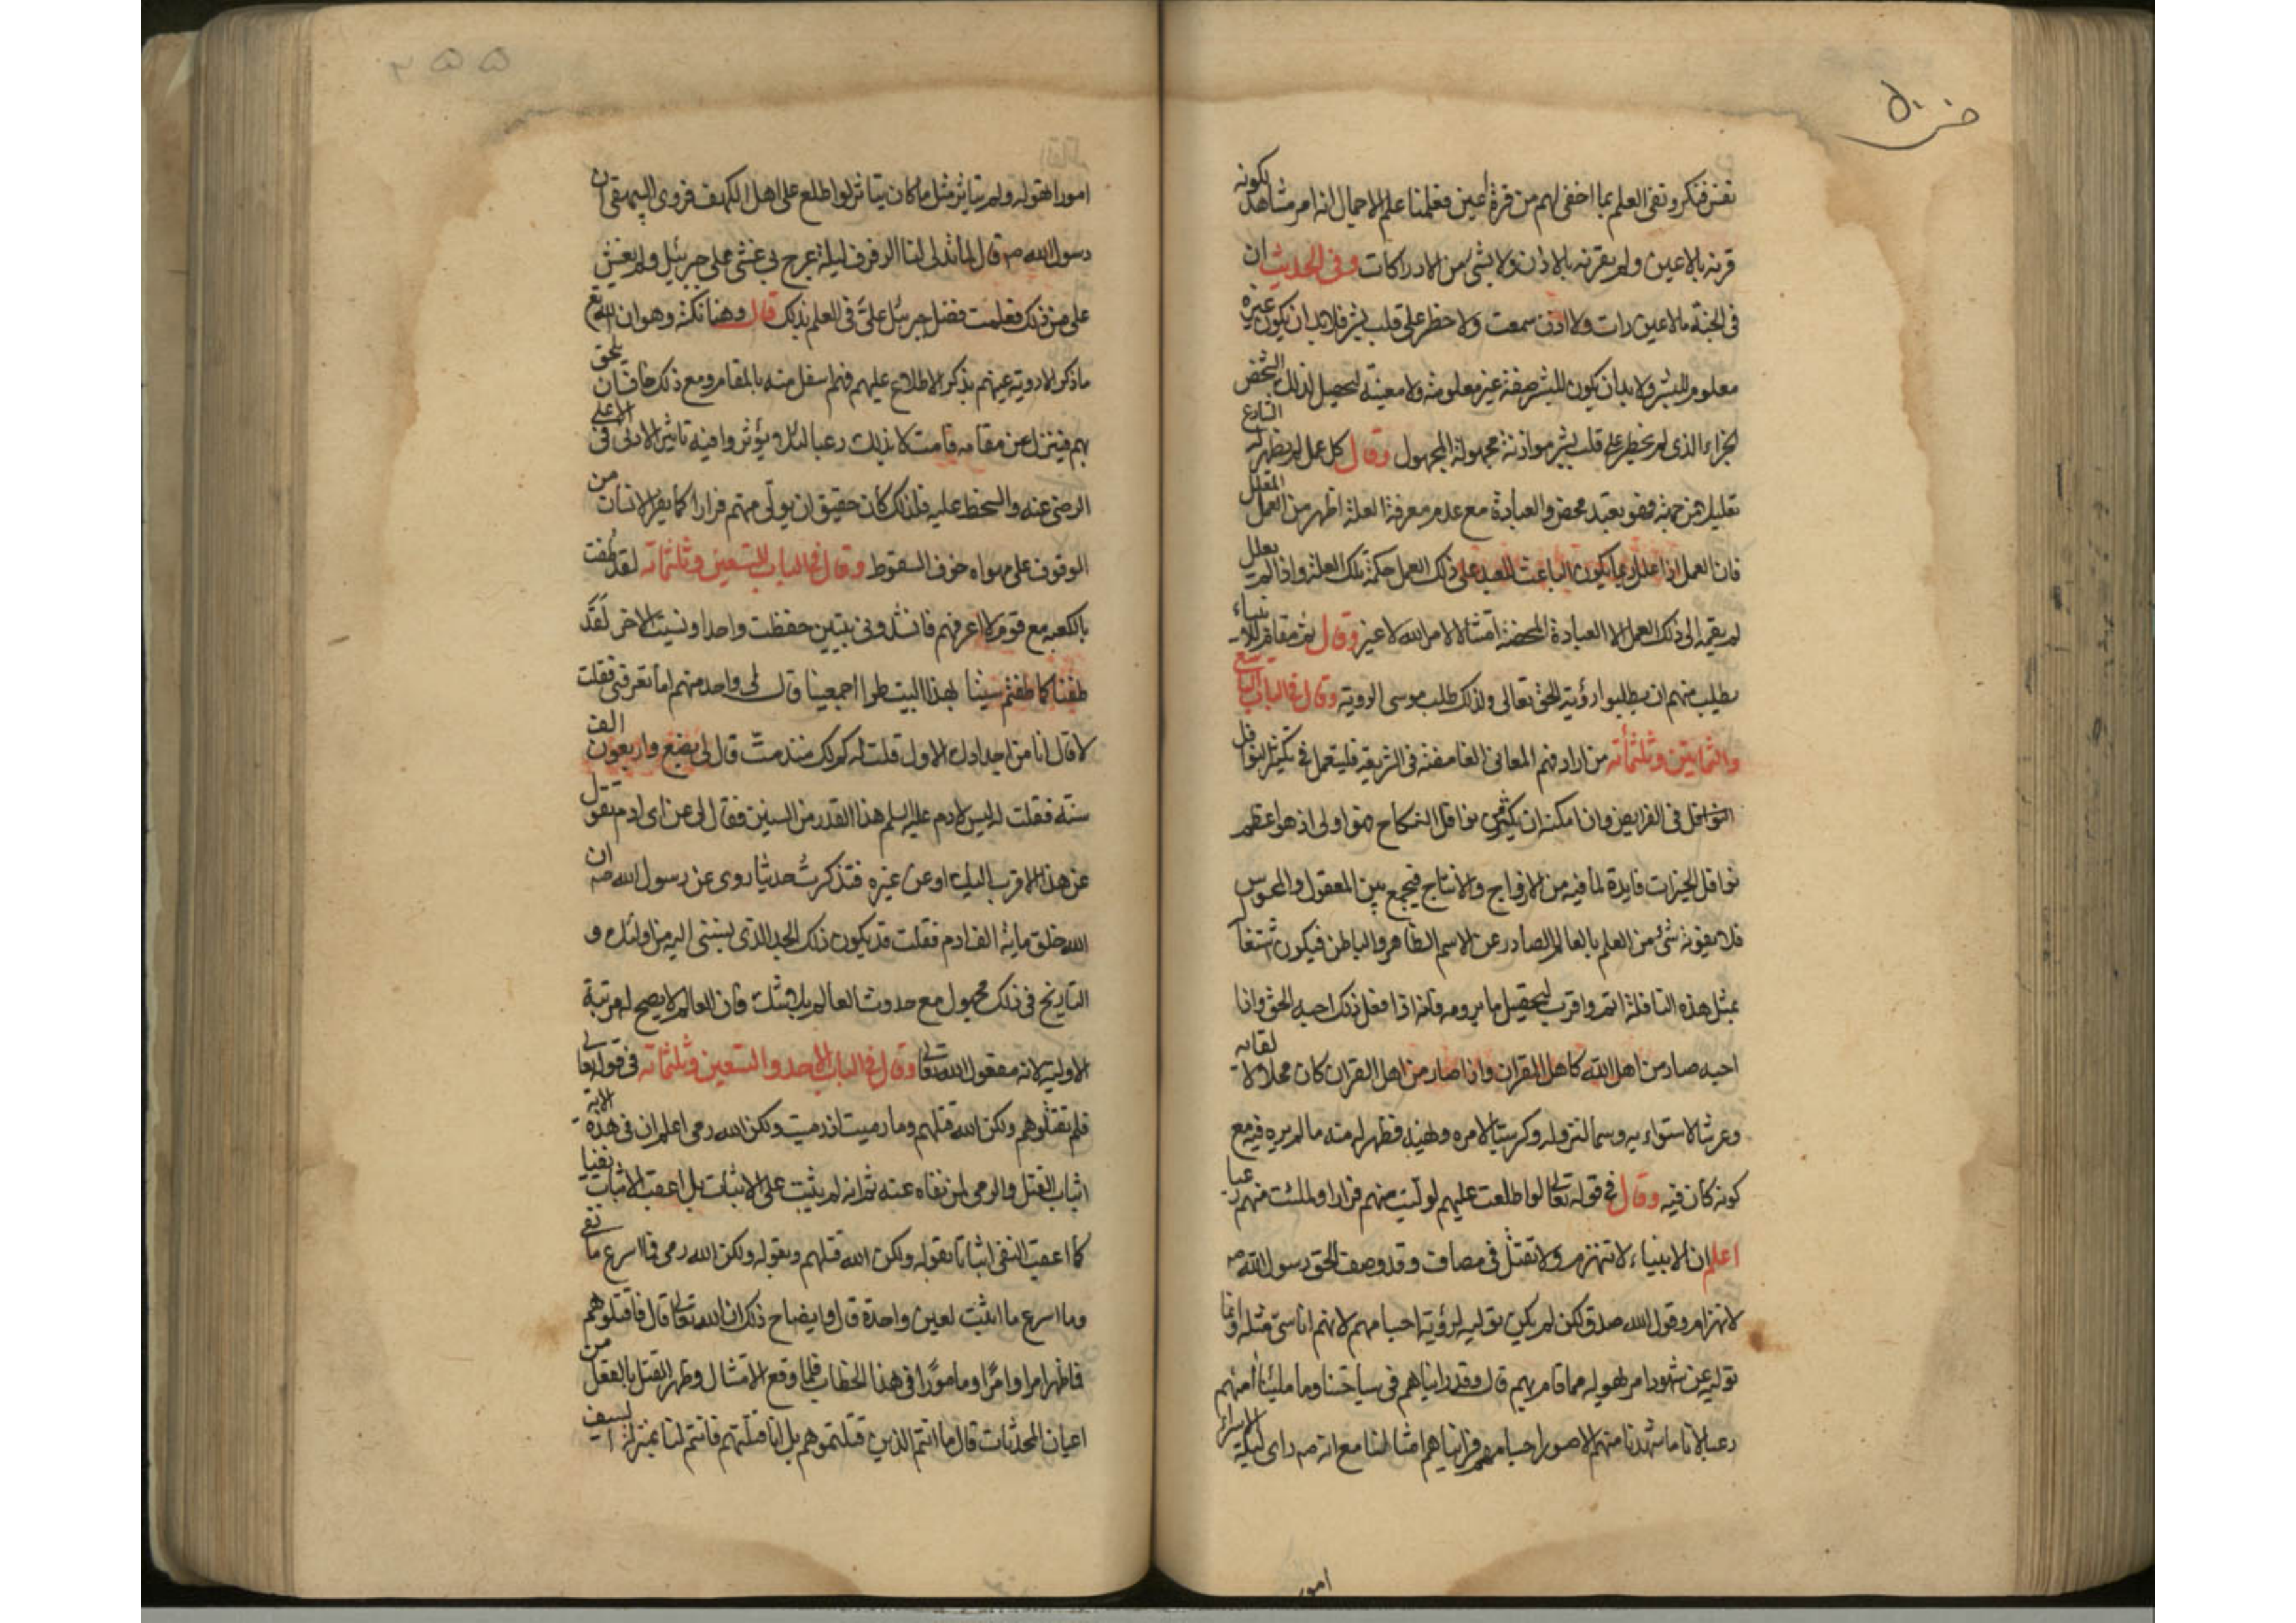 نفس فنكر ونفى العلم بما اخفى لهم من قرة أعين فعلمنا على الاجمال انه امر مشاهد لكونه
قرنه بالاعين ولم يقرنه بالاذن ولا بشئ من الادراكات وفى الحديث ان
فى الجنة ما لا عين رات ولا اذن سمعت ولا خطر على قلب بشر فلا بد ان يكون غيره
معلوم للبشر ولا بد ان يكون للبشر صفة غير معلومة ولا معينة لتحصيل لذلك الشخص
الجزاء الذى لم يخطر على قلب بشر موازنة مجهولة المجهول وقال كل عمل لم يظهر له الشارع
تعليل من جهته فهو تعبد محض والعبادة مع عدم معرفة العلة اظهر من العمل المعلل
فان العمل اذا علل ربما يكون الباعث للعبد على ذلك العمل حكمة تلك العلة واذا لم يعلل
لم يقمه الى ذلك العمل الا العبادة المحضة امتثالا لامر الله لا غير وقال ثم مقام للانبياء
يطلب منهم ان يطلبوا رؤية الحق تعالى ولذلك طلب موسى الروية وقال فى الباب التاسع
والثمانين وثلثمائه من اراد فهم المعانى الغامضة فى الشريعة فليتعمل فى تكثير نوافل
النوافل فى الفرايض وان امكنه ان يكثر من نوافل النكاح فهو اولى اذ هو اعظم
نوافل الخيرات فايدة لما فيه من الازواج والانتاج فيجمع بين المعقول والمحسوس
فلا يفوته شئ من العلم بالعالم الصادر عن الاسم الظاهر والباطن فيكون اشتغاله
بمثل هذه النافلة اتم واقرب لتحصيل ما يرومه فانه اذا فعل ذلك احبه الحق واذا
احبه صار من اهل الله كاهل القران واذا صار من اهل القران كان محلا للقائه
وعرشا لاستوائه وسما لنزوله وكرسيا لامره ونهيه فظهر له منه ما لم يره فيه مع
كونه كان فيه وقال فى قوله تعالى لو اطلعت عليهم لوليت منهم فرارا ولملئت منهم رعبا
اعلم ان الانبياء لا تنهزم ولا تقتل فى مصاف وقد وصف الحق رسول الله صم
لانهزام وقول الله صدق لكن لم يكن توليه لرؤية اجسامهم لانهم اناسى مثله وانما
توليه عن شهود امر لهوله مما قام بهم قال وقد رايناهم فى سياحتنا وما ملئنا منهم
رعبا لانا ما شهدنا منهم الا صور اجسامهم فرايناهم امثالنا مع انه صم راى ليلة الاسراء
امور
امورا لهوله ولم يتاثر مثل ما كان يتاثر لو اطلع على اهل الكهف فروى البيهقى ان
رسول الله صم قال لما تدلى لنا الرفرف ليلة عرج بى غشى على جبرئيل ولم يغش
على من ذلك فعلمت فضل جبرئيل علىّ فى العلم بذلك قال وهنا نكتة وهو ان الله تع
ما ذكر الا روية عينهم بذكر الاطلاع عليهم فهم اسفل منه بالمقام ومع ذلك خاف ان يلحق
بهم فينزل عن مقامه فامتلا بذلك رعبا لئلا يؤثروا فيه تاثير الادنى فى الاعلى
الرضى عنه والسخط عليه فلذلك كان حقيق ان يولى منهم فرارا كما يفر الانسان من
الوقوف على مهواه خوف السقوط وقال فى الباب التسعين وثلثمائه لقد طفت
بالكعبه مع قوم لا اعرفهم فانشدونى بيتين حفظت واحدا ونسيت الاخر لقد
طفنا كما طفتم سنينا بهذا البيت طرا اجمعينا قال لى واحد منهم اما تعرفنى فقلت
لا قال انا من اجدادك الاول قلت له كم لك منذ متّ قال لى بضع واربعون الف
سنة فقلت له ليس لادم عليه السلم هذا القدر من السنين فقال لى عن اى ادم تقول
عن هذا الاقرب اليك او عن غيره فتذكرت حديثا روى عن رسول الله صم ان
الله خلق ماية الف ادم فقلت قد يكون ذلك الجد الذى ينتسب اليه من اولئك و
التاريخ فى ذلك مجهول مع حدوث العالم بلا شك فان العالم لا يصح له مرتبة
الاولية لانه مفعول الله تعالى وقال فى الباب الاحد والتسعين وثلثمائه فى قوله تعالى
فلم تقتلوهم ولكن الله قتلهم وما رميت اذ رميت ولكن الله رمى اعلم ان فى هذه الاية
اثبات القتل والرمى لمن نفاه عنه ثم انه لم يثبت على الاثبات بل اعقب الاثبات نفيا
كما اعقب النفى اثباتا بقوله ولكن الله قتلهم وبقوله ولكن الله رمى فما اسرع ما نفى
وما اسرع ما اثبت لعين واحدة قال وايضاح ذلك ان الله تعالى قال فاقتلوهم
فاظهر امرا وامرًا ومامورًا فى هذا الخطاب فلما وقع الامتثال وظهر القتل بالفعل من
اعيان المحدثات قال ما انتم الذين قتلتموهم بل انا قتلتهم فانتم لنا بمنزلة السيف